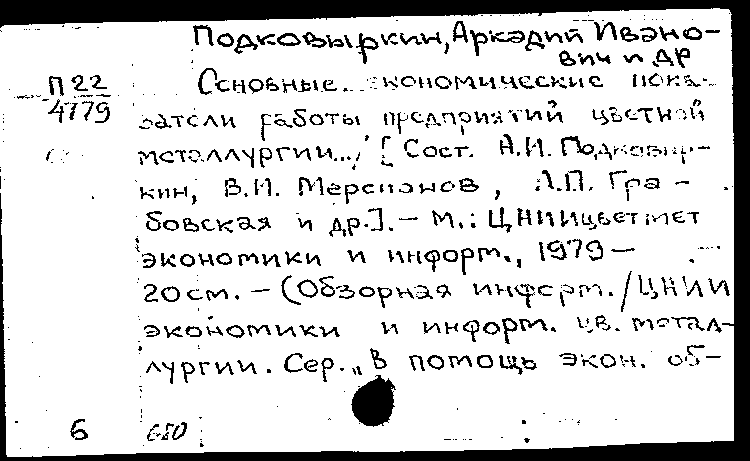 Подковыркин, Аркадий Ивано-
вич и др
П 22
4779
Основные экономические пока-
затели работы предприятий цветной
металлургии.../ [Сост. А.И. Подковыр-
кин, В.И. Мерсианов, А.П. Гра-
бовская и др.]. – М.: ЦНИИцветмет
экономики и информ., 1979 –
20 см. – (Обзорная информ./ЦНИИ
экономики и информ. цв. метал-
лургии. Сер. „В помощь экон. об-
6 680